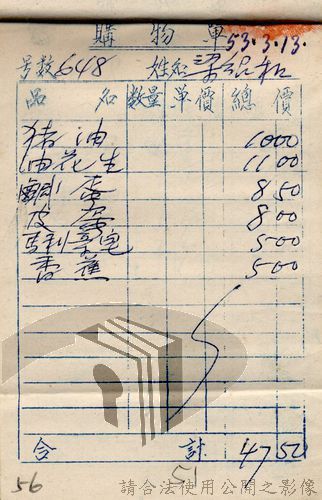 購物單
53.3.13.
号数 648 姓名 梁
品名 数量 单價 總價
猪油 1000
油花生 1100
蛋 850
皮蛋 800
500
香蕉 500
合計 4750
56
51
請合法使用公開之影像